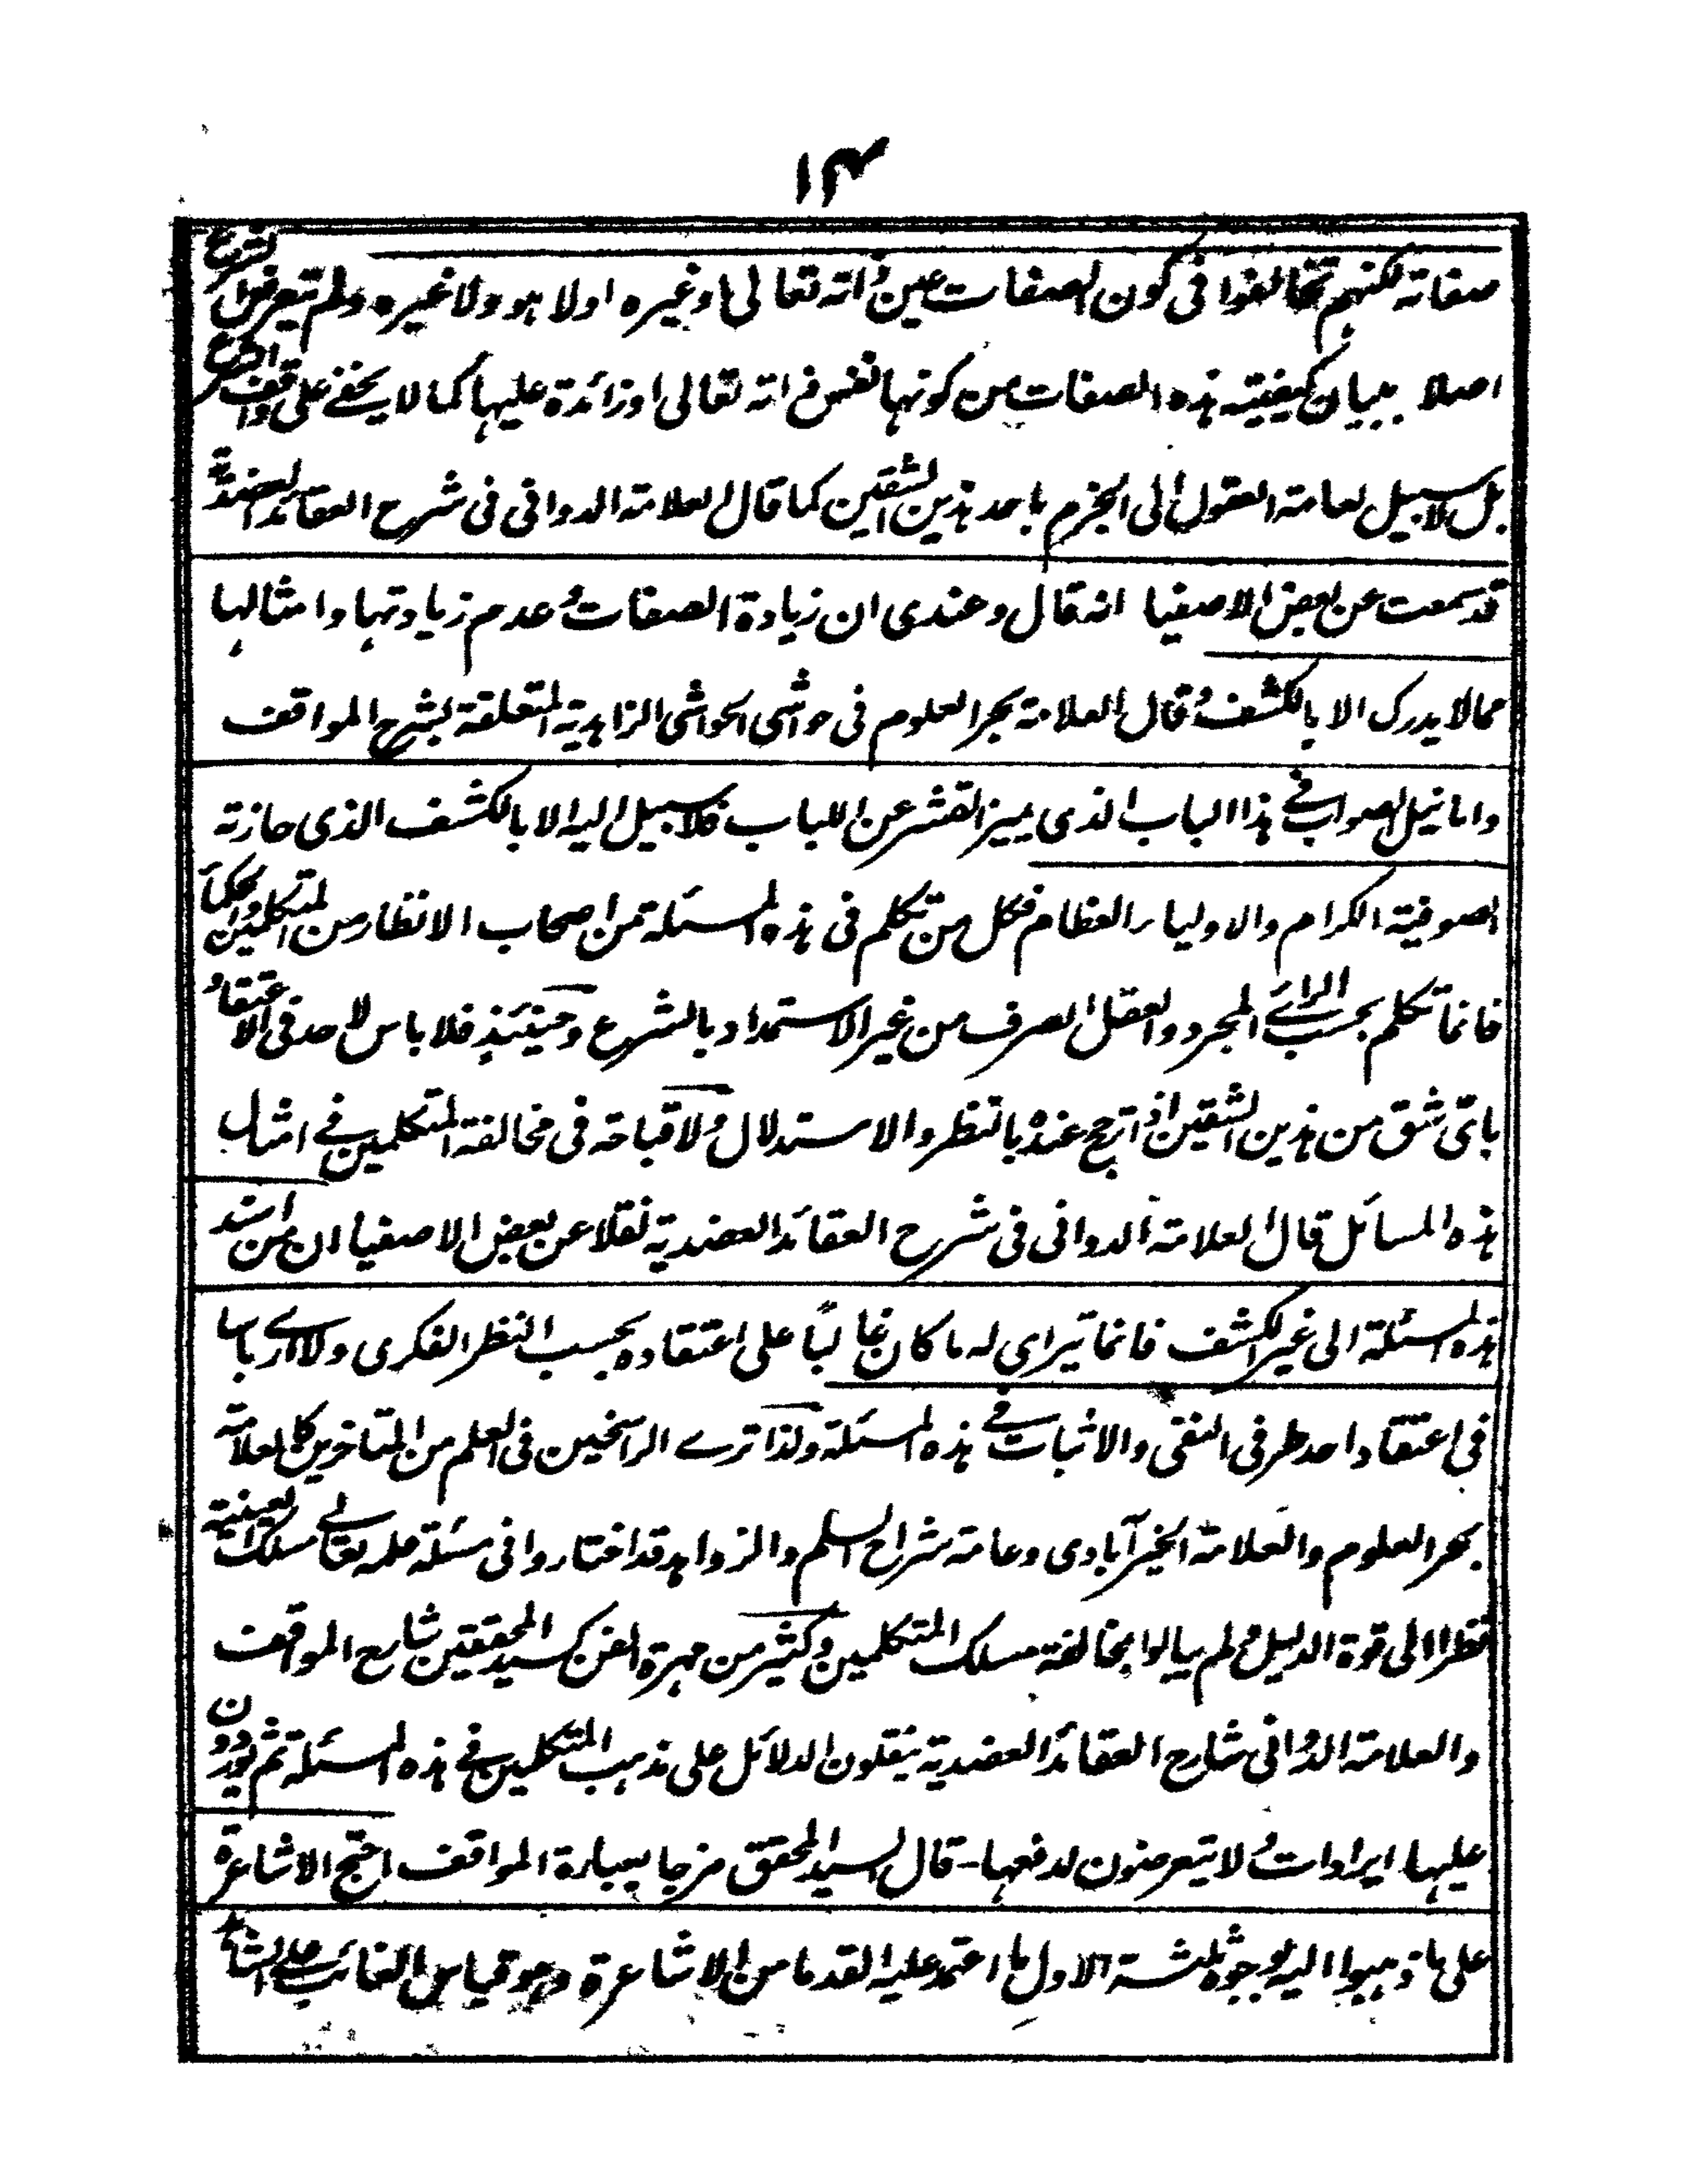 ۱۴
صفاته لكنهم تخالفوا فى كون الصفات عين ذاته تعالى او غيره او لا هو ولا غيره ولم يتعرض الشرع
اصلا ببيان كيفيته هذه الصفات من كونها نفس ذاته تعالى او زائدة عليها كما لا يخفے على واقف الشرع
بل لا سبيل لعامة العقول الى الجزم باحد هذين الشقين كما قال العلامة الدوانى فى شرح العقائد العضدية
قد سمعت عن بعض الاصفيا انه قال وعندى ان زيادة الصفات و عدم زيادتها وامثالها
مما لا يدرك الا بالكشف و قال العلامة بحر العلوم فى حواشى الحواشى الزاهدية المتعلقة بشرح المواقف
واما نيل الصواب فے هذا الباب الذى يميز القشر عن اللباب فلا سبيل اليه الا بالكشف الذى حازته
الصوفية الكرام والاولياء العظام فكل من تكلم فى هذه المسئلة من اصحاب الانظار من المتكلمين والحكماء
فانما تكلم بحسب الراے المجرد والعقل الصرف من غير الاستمداد بالشرع وحينئذ فلا باس لاحد فى الاعتقاد
باىّ شق من هذين الشقين اذا ترجح عنده بالنظر والاستدلال ولا قباحة فى مخالفة المتكلمين فے امثال
هذه المسائل قال العلامة الدوانى فى شرح العقائد العضدية نقلا عن بعض الاصفيا ان من اسند
هذه المسئلة الى غير الكشف فانما يتراى له ما كان غالبًا على اعتقاده بحسب النظر الفكرى ولا ارے باسا
فى اعتقاد احد طرفى النفى والاثبات فے هذه المسئلة ولذا ترے الراسخين فى العلم من المتاخرين كالعلامة
بحر العلوم والعلامة الخيرآبادى وعامة شراح السلم والزواهد قد اختاروا فى مسئلة علمه تعالے مسلك العينية
نظرا الى قوة الدليل و لم يبالوا بمخالفة مسلك المتكلمين وكثير من مهرة الفن كسيد المحققين شارح المواقف
والعلامة الدوانى شارح العقائد العضدية ينقلون الدلائل على مذهب المتكلمين فے هذه المسئلة ثم يوردون
عليها ايرادات و لا يتعرضون لدفعها - قال السيد المحقق مزجا بعبارة المواقف احتج الاشاعرة
على ما ذهبوا اليه بوجوه ثلثة الاول ما اعتمد عليه القدما من الاشاعرة وهو قياس الغائب على الشاهد